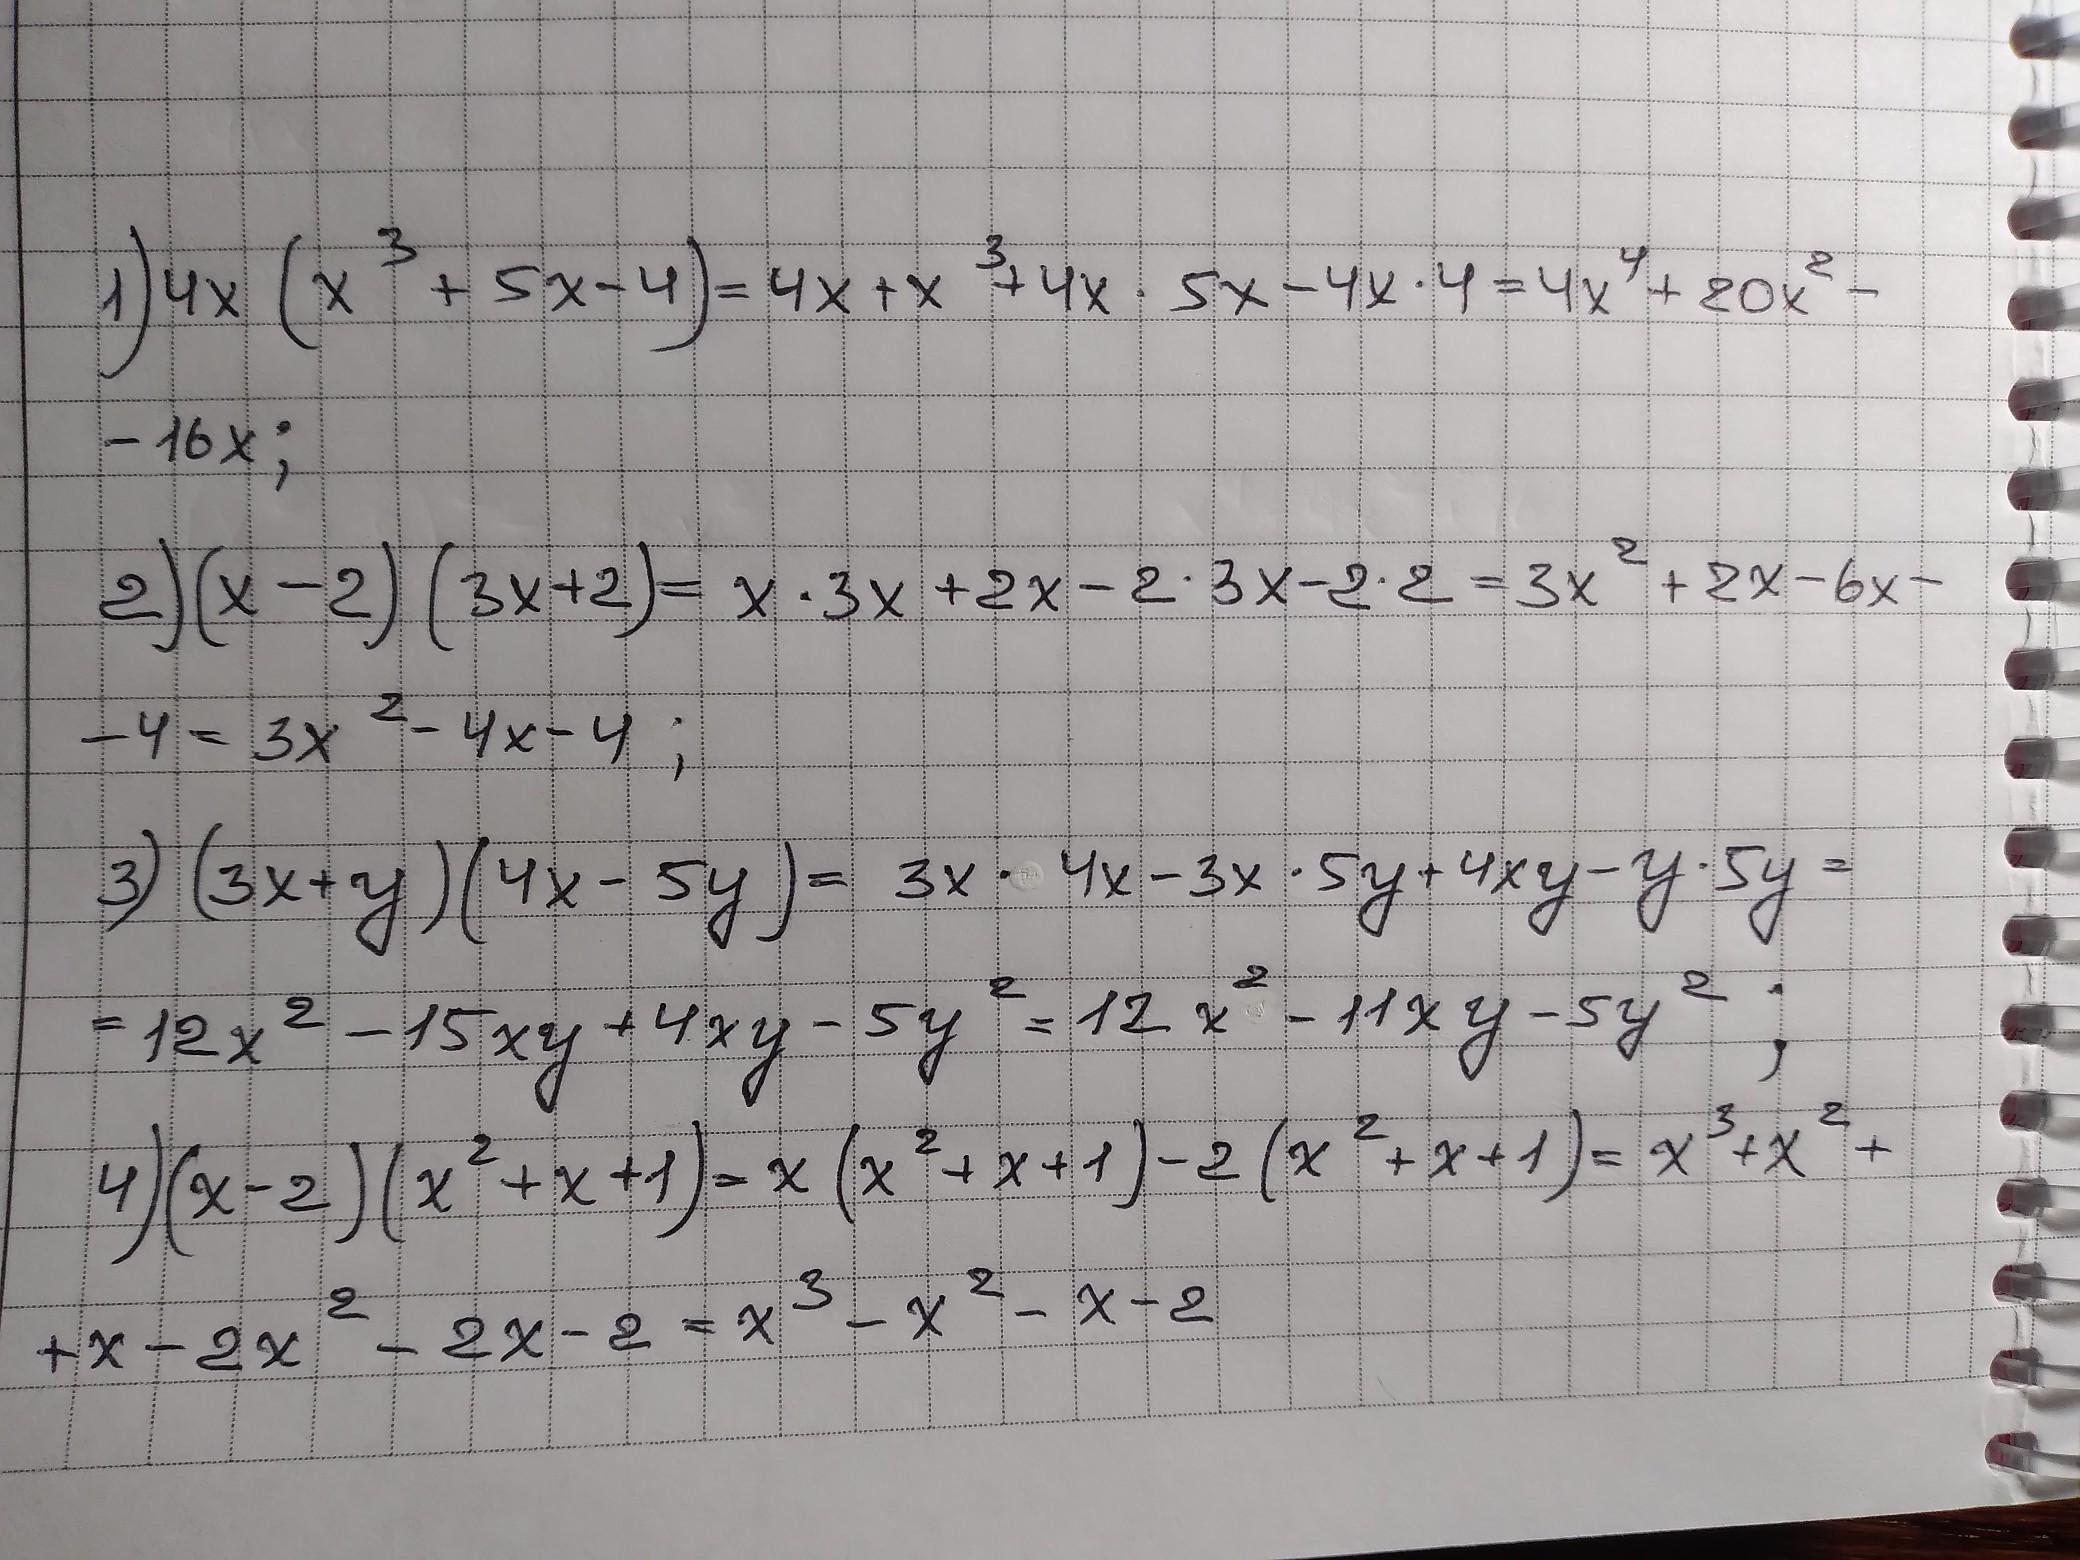 1) 4x (x³ + 5x - 4) = 4x + x³ + 4x · 5x - 4x · 4 = 4x⁴ + 20x² -
- 16x ;
2) (x - 2) (3x + 2) = x · 3x + 2x - 2 · 3x - 2 · 2 = 3x² + 2x - 6x -
- 4 = 3x² - 4x - 4 ;
3) (3x + y) (4x - 5y) = 3x · 4x - 3x · 5y + 4xy - y · 5y =
= 12x² - 15xy + 4xy - 5y² = 12x² - 11xy - 5y² ;
4) (x - 2) (x² + x + 1) = x (x² + x + 1) - 2 (x² + x + 1) = x³ + x² +
+ x - 2x² - 2x - 2 = x³ - x² - x - 2